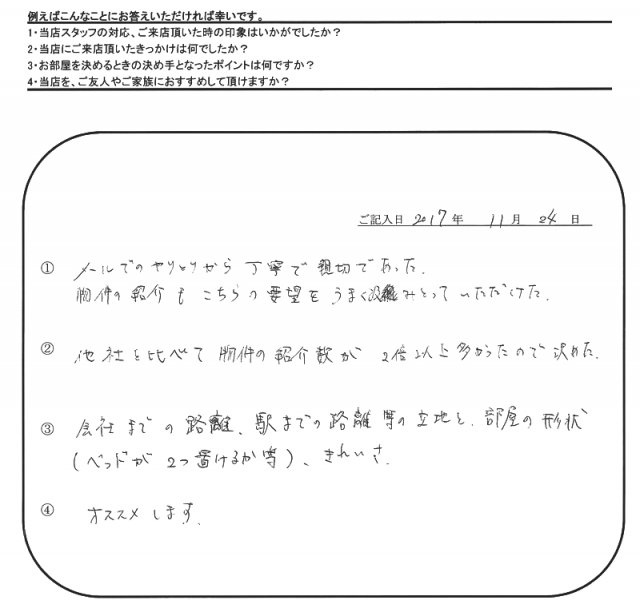 例えばこんなことにお答えいただければ幸いです。
1・当店スタッフの対応、ご来店頂いた時の印象はいかがでしたか？
2・当店にご来店頂いたきっかけは何でしたか？
3・お部屋を決めるときの決め手となったポイントは何ですか？
4・当店を、ご友人やご家族におすすめして頂けますか？
ご記入日 2017年 11月 24日
① メールでのやりとりから丁寧で親切であった。
物件の紹介もこちらの要望をうまく汲みとっていただけた。
② 他社と比べて物件の紹介数が2倍以上多かったので決めた。
③ 会社までの路離、駅までの路離等の立地と、部屋の形状
(ベッドが2つ置けるか等)、きれいさ。
④ オススメします。